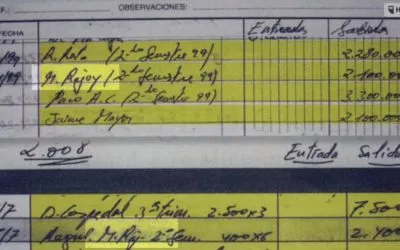 OBSERVACIONES:
FECHA Entradas Salidas
/99 R. Rato (2º Semestre 99) 2.280.00
/99 M. Rajoy (2º Semestre 99) 2.100.00
Paco A.C. (2º Semestre 99) 3.300.00
Jaime Mayor 2.100.00
2.008 Entrada Salida
/7 D. Cospedal 3º trim. 2.500x3 7.50
/7 M. Raj. 2º Sem. 400x6 2.40